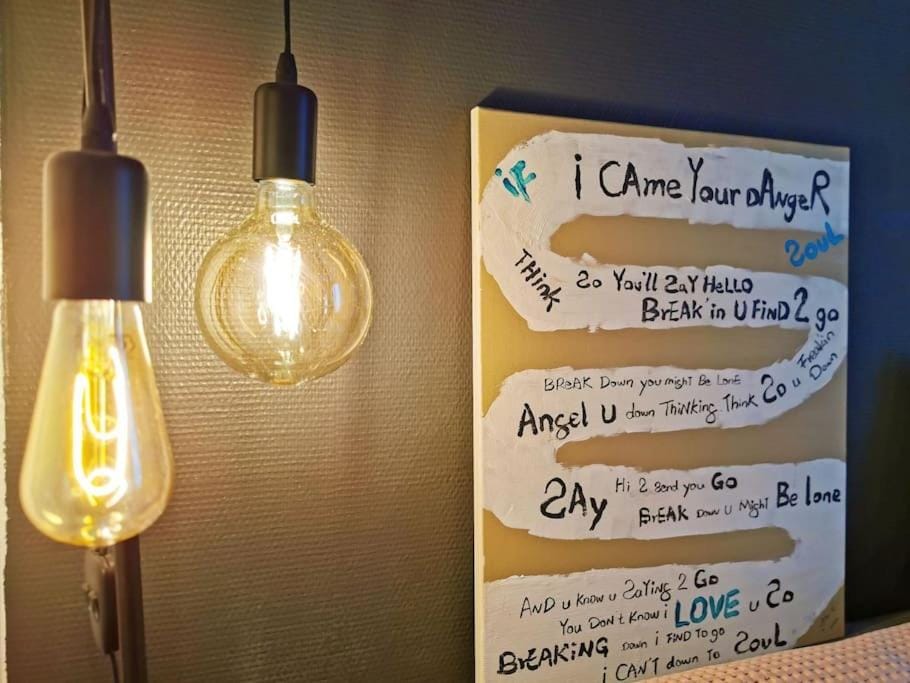 iF i CAme Your DAngeR
SOUL
THiNK So You'll SaY HeLLO
BrEAK'in U FiND 2 go
Freakin Down
BREAK Down you might Be LonE So u
Angel U down ThiNKing Think
SAy Hi 2 Send you Go
BrEAK Down U Might Be lone
AND u Know u SaYing 2 Go
You Don't Know i LOVE u So
BrEAKiNG Down i FiND To go
i CAN'T down To SOUL